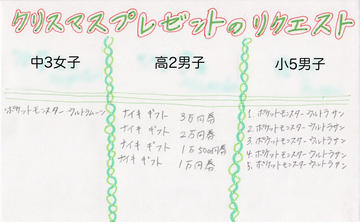 クリスマスプレゼントのリクエスト
中3女子
高2男子
小5男子
・ポケットモンスター ウルトラムーン
ナイキ ギフト 3万円券
ナイキ ギフト 2万円券
ナイキ ギフト 1万5000円券
ナイキ ギフト 1万円券
1. ポケットモンスター ウルトラサン
2. ポケットモンスター ウルトラサン
3. ポケットモンスター ウルトラサン
4. ポケットモンスター ウルトラサン
5. ポケットモンスター ウルトラサン